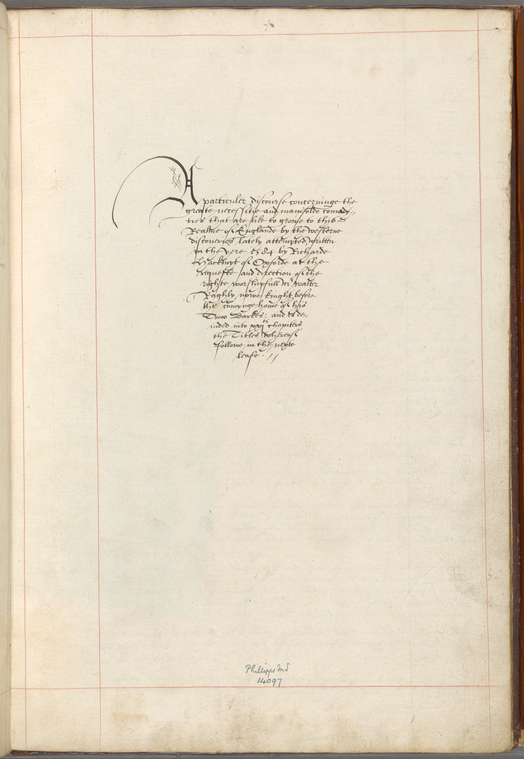 A particuler discourse concerninge the
greate necessitie and manifolde comodyties
ties that are like to growe to this
Realme of Englande by the Westerne
discoveries lately attempted, written
in the yere 1584 by Richarde
Hackluyt of Oxforde at the
requeste and direction of the
righte worshipfull Mr Walter
Raghly, nowe Knight, before
the comynge home of his
Twoo Barkes: and is devided
into xxj chapiters
the Titles whereof
followe in the nexte
leafe.
Phillipps MS
14097